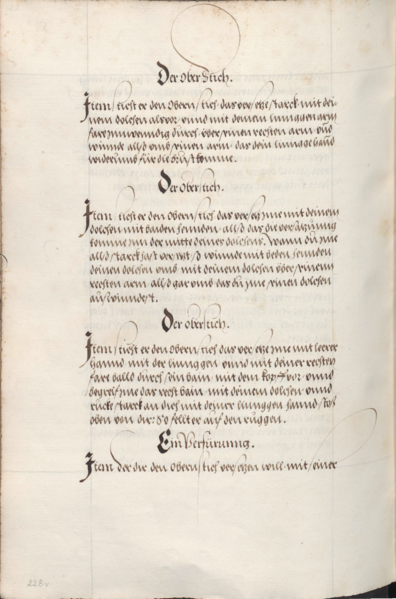 Der ober Stich.
Item sticht er den Obern stich das versetze starck mit dei
nem dolchen alvor unnd mit deinem linnggen arm
far Inwenndig durch uber seinen rechten arm und
winnde also umb seinen arm das dein linngge hannd
widerumb für die brust komme.
Der ober stich.
Item sticht er den Obern stich das versetz Ime mit deinem
dolchen mit baiden hennden also das die versatzung
komme Inn der mitte deines dolchens. Wann du Ime
also starck hast versetzt so winnde mit beden hennden
deinen dolchen unnd mit deinem dolchen uber seinem
rechten arm also gar unnd das du Ime seinen dolchen
auswindest.
Der ober stich.
Item sticht er den Obern stich das versetze Ime mit leerer
hannd mit der linnggen unnd mit deiner rechten
fare balld durch sein bain mit dem kopf vor unnd
begreif Ime das recht bain mit deinem dolchen unnd
ruckt starck an dich mit deiner linnggen hannd stos
oben von dir: So fellt er auf den ruggen.
Ein Verfürung.
Item der dir den Obern stich versetzen will mit seiner
228v